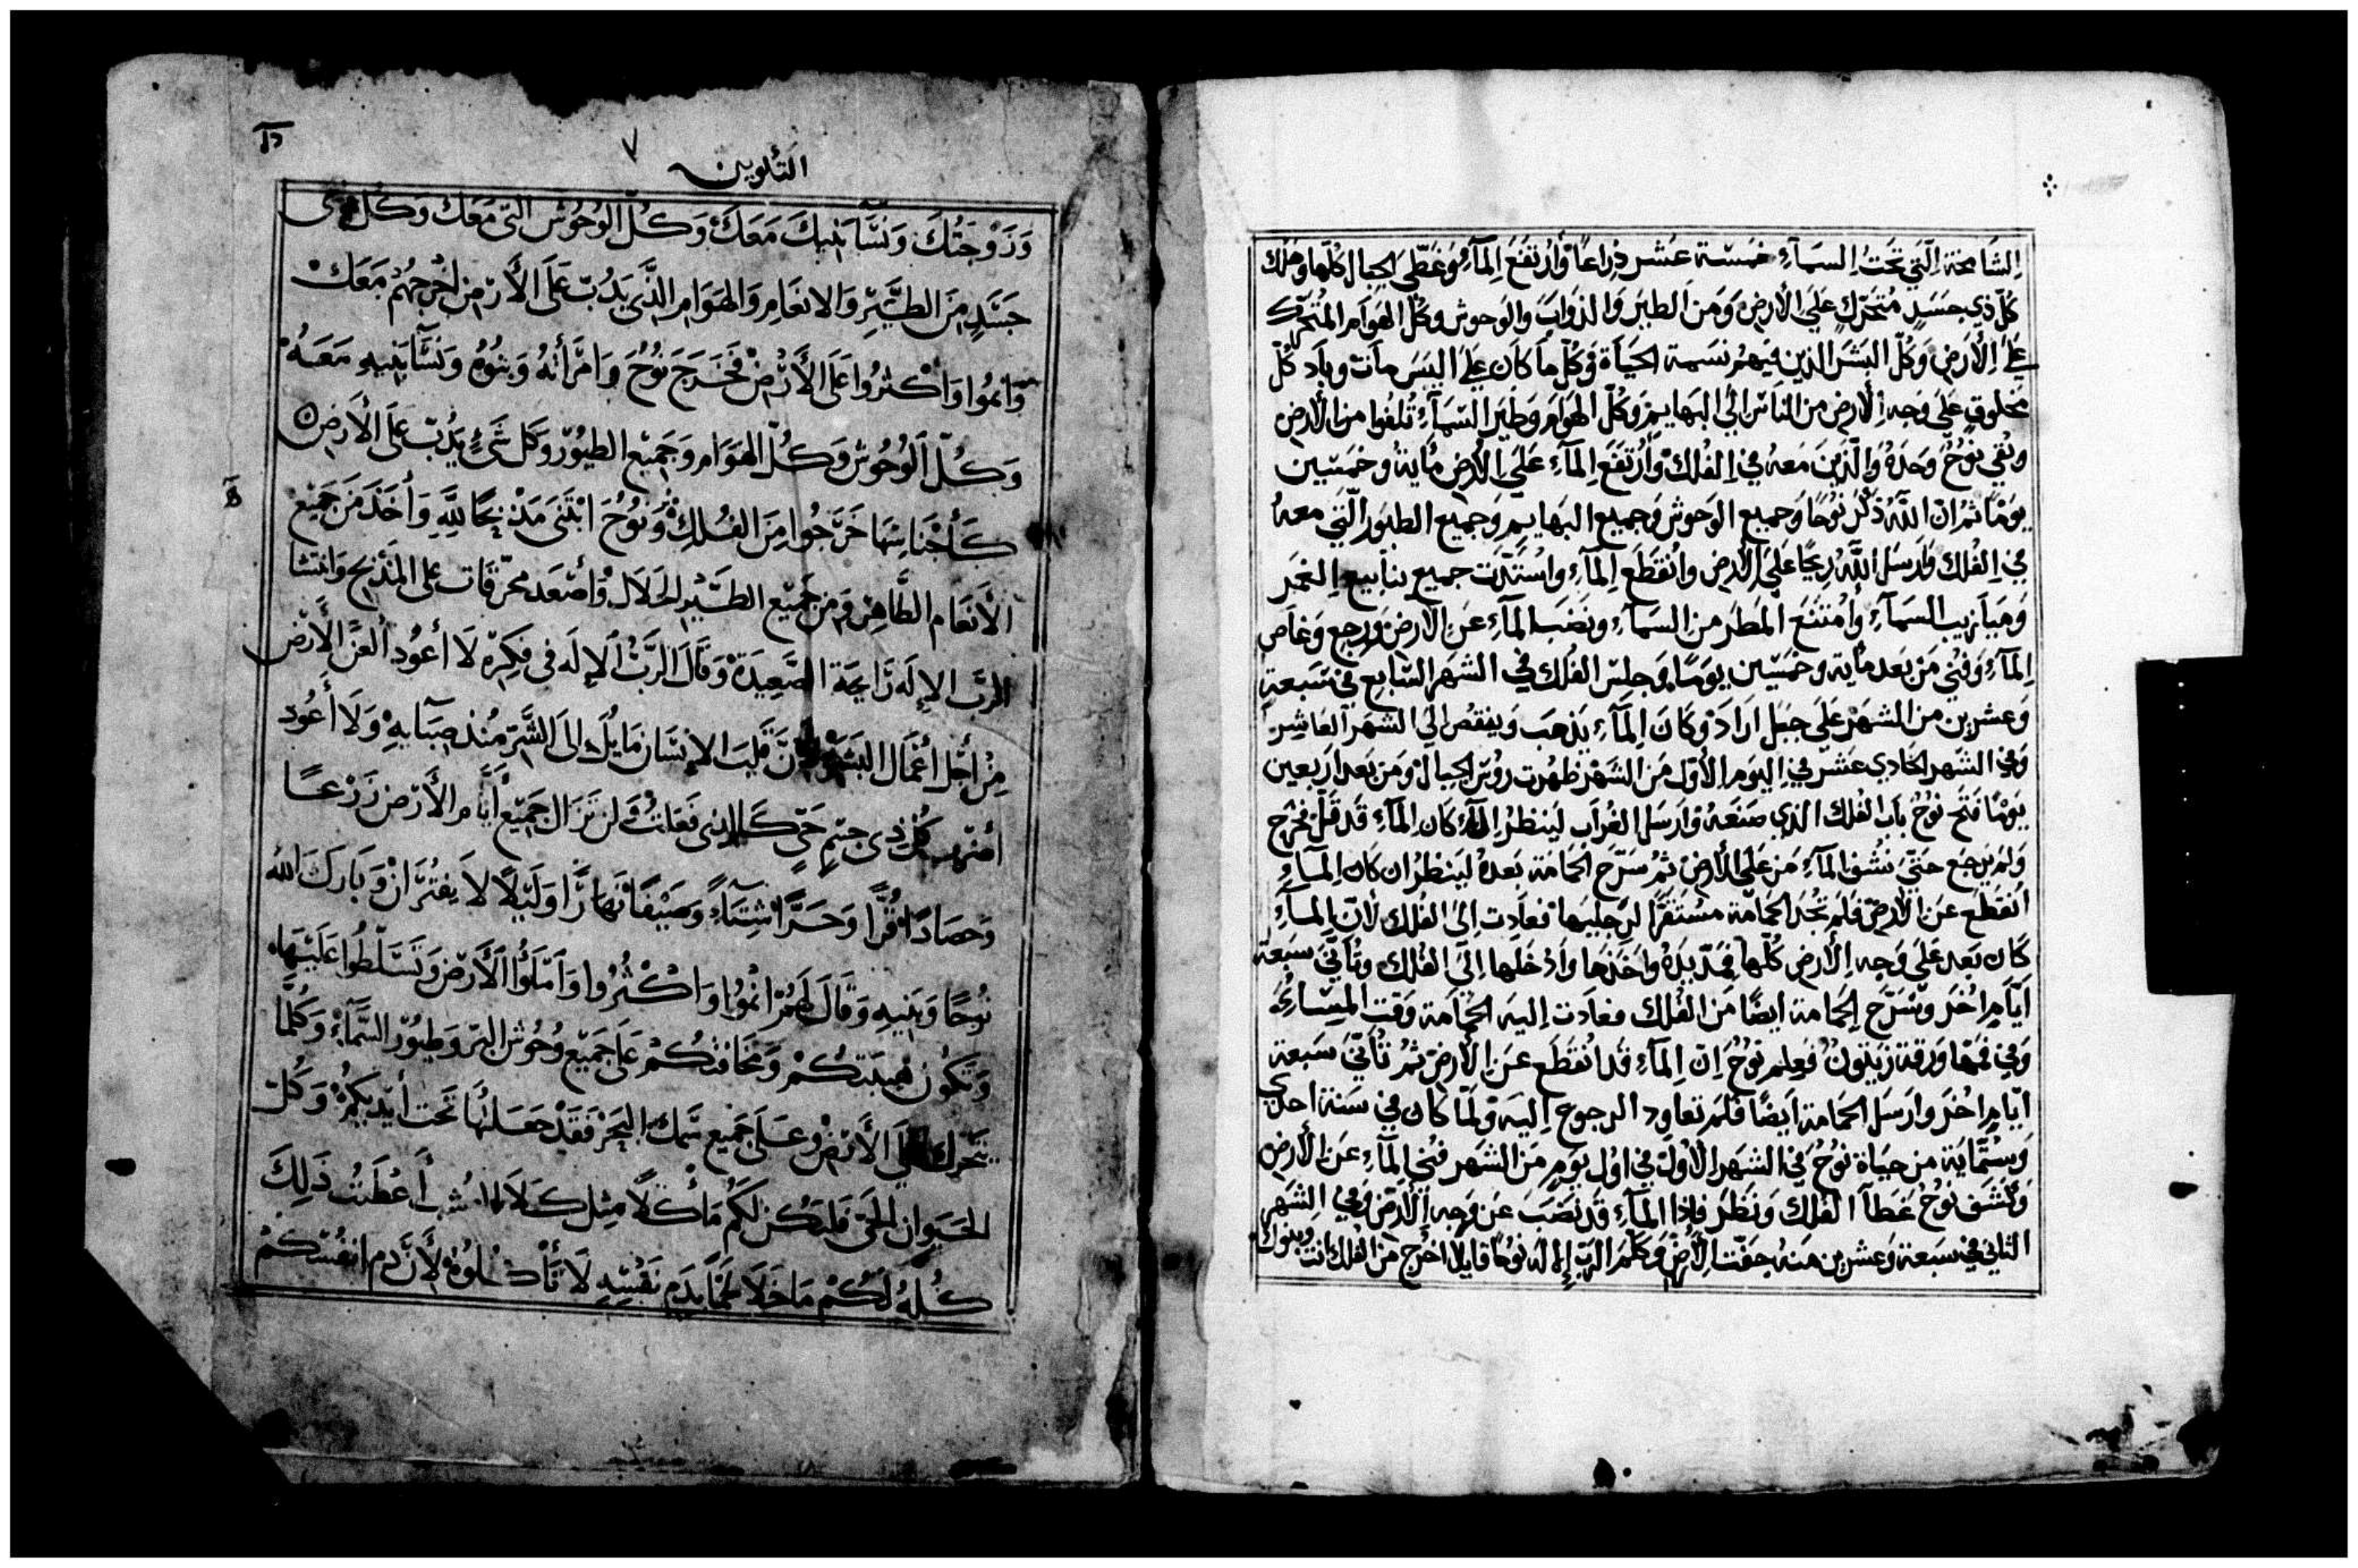 الشامخة التي تحت السماء خمسة عشر ذراعًا وارتفع الماء وغطّى الجبال كلها وهلك
كلّ ذي جسد متحرك على الأرض ومن الطير والدواب والوحوش وكل الهوام المتحرك
على الأرض وكلّ البشر الذين فيهم نسمة الحياة وكلّ ما كان على اليبس مات وباد كلّ
مخلوق على وجه الأرض من الناس الى البهايم وكلّ الهوام وطير السماء تلفوا من الأرض
وبقي نوحُ وحدهُ والّذين معه في الفلك وارتفع الماء على الأرض مأية وخمسين
يومًا ثم ان الله ذكر نوحًا وجميع الوحوش وجميع البهايم وجميع الطيور الّتي معه
في الفلك وارسل الله ريحًا على الأرض وانقطع الماء واستدّت جميع ينابيع الغمر
وميازيب السماء وامتنع المطر من السماء ونضب الماء عن الأرض ورجع وغاص
الماء وفني من بعد مأية وخمسين يومًا وجلس الفلك في الشهر السّابع في سبعة
وعشرين من الشهر على جبل اراد وكان الماء يذهب وينقص الى الشهر العاشر
وفي الشهر الحادي عشر في اليوم الأوّل من الشهر ظهرت رؤس الجبال ومن بعد اربعين
يومًا فتح نوحُ باب الفلك الذي صنعه وارسل الغراب لينظر كان الماء قد قلّ فخرج
ولم يرجع حتى نشف الماء من على الأرض ثم سرّح الحمامة بعدهُ لينظر ان كان الماء
انقطع عن الأرض فلم تجد الحمامة مستقرًا لرجليها فعادت الى الفلك لأنّ الماء
كان بعد على وجه الأرض كلّها فمدّ يدهُ واخذها وأدخلها الى الفلك وتأنّى سبعة
ايّام اخر وسرّح الحمامة ايضًا من الفلك فعادت اليه الحمامة وقت المساء
وفي فمها ورقة زيتون فعلم نوحُ انّ الماء قد انقطع عن الأرض ثم تأنّى سبعة
ايّام اخر وارسل الحمامة ايضًا فلم تعاود الرجوع اليه ولمّا كان في سنة احدى
وستمّاية من حياة نوحُ في الشهر الأوّل في اوّل يوم من الشهر فني الماء عن الأرض
وكشف نوحُ غطآ الفلك ونظر فاذا الماء قد نضب عن وجه الأرض وفي الشهر
الثاني في سبعة وعشرين منه جفّت الأرض وكلّم الرب الإله نوحًا قايلًا اخرج من الفلك انت وبنوك
التكوين
٧
وَزَوْجَتُكَ وَنِسَآ بَنِيكَ مَعَكَ وَكُلّ الوُحُوش الّتى مَعَكَ وَكُل ذى
جَسَدٍ مِنَ الطَّيْرِ وَالانعَامِ وَالهَوَامِ الَّذِى يَدُبّ عَلَى الأَرْضِ اخْرِجهُمْ مَعَكْ
وَانمُوا وَاكْثرُوا عَلَى الأَرْضْ فَخَرَجَ نُوْحُ وَامْرَأَتُهُ وَبنُوهُ وَنِسَآ بَنِيهِ مَعَهُ
وَكُلّ الْوُحُوش وَكُلّ الهَوَام وَجَمِيْع الطيُوْر وَكل شَىءٍ يَدُبّ عَلَى الأَرضِ
كَأَجْنَاسِهَا خَرَجُوا مِنَ الفُلكِ وَنوُحُ ابْتَنَى مَذْبَحًا لِلَّهِ وَأَخَذَ مَن جَمِيْع
الأَنعَام الطَّاهِرَة وَمِن جَمِيْع الطَّيْرِ الحَلَال وَأَصْعَد محرّقَات على المَذْبح وَانتشا
الرب الإله رَايحَة الصَّعِيدَة وَقَالَ الرَّبّ الإله فى فِكِرِه لَا أعُوْد ألعَن الأَرْض
مِنْ أَجْل أَعْمَال البَشَر لأنَّ قَلبَ الإِنسَان مَايُل الى الشَّرّ مُنذ صِبَآيهِ وَلَا أعُود
أضرب كُل ذى جسْمٍ حَىّ كَالذى فعَلتُ وَلن تَزَال جَميْع أَيَّام الأَرْض زَرْعًا
وَحصَادًا قُرًّا وَحَرًّا شِتَآءً وَصَيْفًا نَهَارًا وَلَيْلًا لا يَفتُرَانْ وَبَارَكَ الله
نُوحًا وَبَنِيهِ وَقَالَ لَهُمْ انْمُوُا وَاكْثُرُوا وَامْلَؤُا الأَرْضَ وَتَسَلَّطُوا عَلَيْهَا
وَتَكوُن هَيبَتكُمْ وَمَخَافَتكُمْ عَلَى جَمِيْع وُحُوْش البَر وَطيُوْر السَّمَآءْ وَكُلَّمَا
يتحرّك على الأَرْضْ وَعَلَى جَمِيْع سَمَك البَحْر فَقَدْ جَعَلتُهَا تَحت أَيْدِيكُمْ وَكُلّ
الحَيَوان الحَىّ فليَكُن لكُم مَأكَلًا مِثل كَلَا العُشب أَعْطَيتُ ذَلِكَ
كُلّهُ لَكُمْ مَا خَلَا لَحْمًا بِدَم نَفْسِهِ لَا تَأكُلوُهْ لأَنَّ دَم انفُسَكُمْ